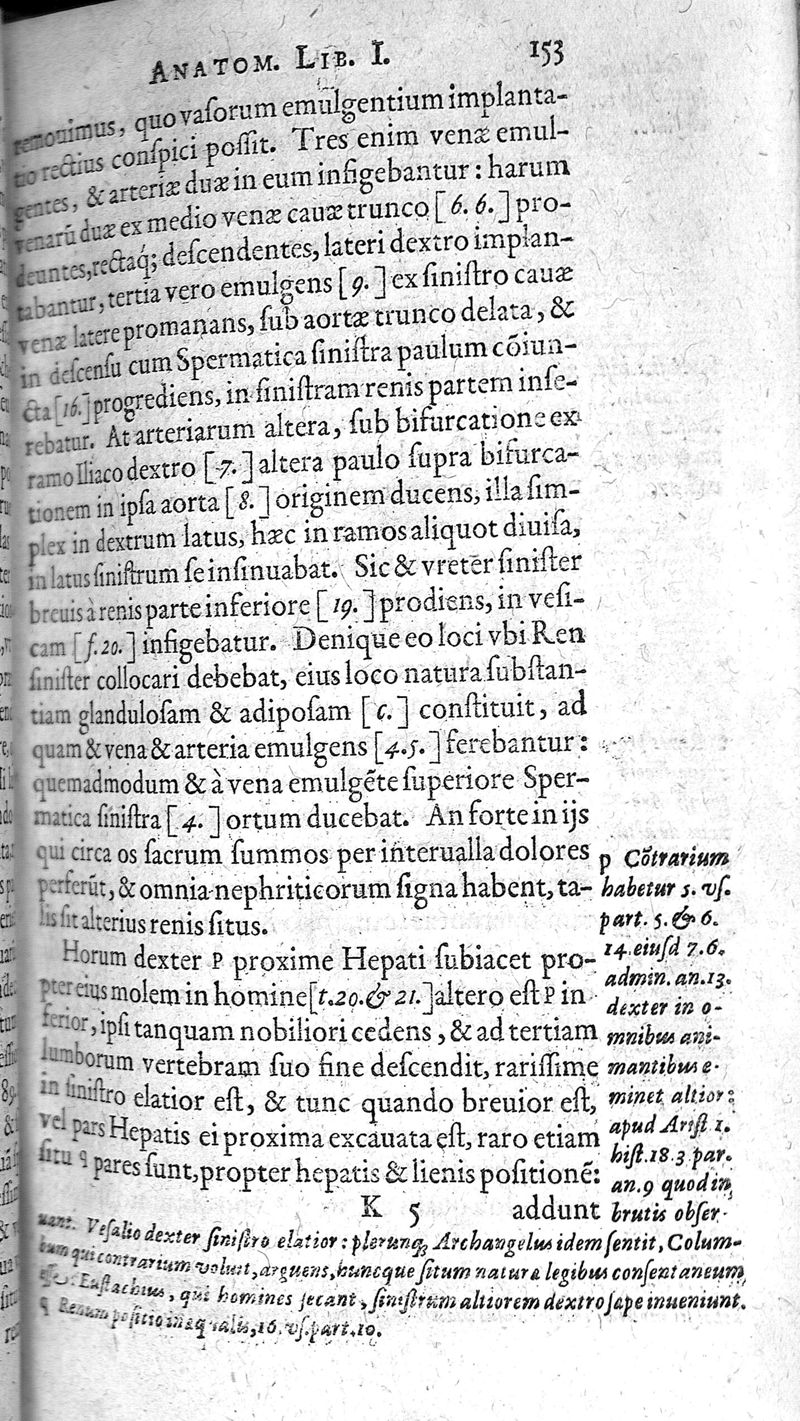 ANATOM. LIB. I. 153
remouimus, quo vaſorum emulgentium implanta-
tio rectius conſpici poſſit. Tres enim venæ emul-
gentes, & arteriæ duæ in eum infigebantur: harum
venarū duæ ex medio venæ cauæ trunco [ 6. 6. ] pro-
deuntes, rectaq; deſcendentes, lateri dextro implan-
tabantur, tertia vero emulgens [ 9. ] ex ſiniſtro cauæ
venæ latere promanans, ſub aortæ trunco delata, &
in deſcenſu cum Spermatica ſiniſtra paulum cōiun-
cta [16.] progrediens, in ſiniſtram renis partem inſe-
rebatur. At arteriarum altera, ſub bifurcatione ex
ramo Iliaco dextro [ 7. ] altera paulo ſupra bifurca-
tionem in ipſa aorta [ 8. ] originem ducens, illa ſim-
plex in dextrum latus, hæc in ramos aliquot diuiſa,
in latus ſiniſtrum ſe inſinuabat. Sic & vreter ſiniſter
breuis à renis parte inferiore [ 19. ] prodiens, in veſi-
cam [ f. 20. ] infigebatur. Denique eo loci vbi Ren
ſiniſter collocari debebat, eius loco natura ſubſtan-
tiam glanduloſam & adipoſam [ c. ] conſtituit, ad
quam & vena & arteria emulgens [ 4. 5. ] ferebantur:
quemadmodum & à vena emulgēte ſuperiore Sper-
matica ſiniſtra [ 4. ] ortum ducebat. An forte in ijs
qui circa os ſacrum ſummos per interualla dolores
perferūt, & omnia nephriticorum ſigna habent, ta-
lis ſit alterius renis ſitus.
Horum dexter p proxime Hepati ſubiacet pro-
pter eius molem in homine [t. 20. & 21. ] altero eſt p in
ferior, ipſi tanquam nobiliori cedens, & ad tertiam
lumborum vertebram ſuo fine deſcendit, rariſſime
in ſiniſtro elatior eſt, & tunc quando breuior eſt,
vel pars Hepatis ei proxima excauata eſt, raro etiam
ſitu q pares ſunt, propter hepatis & lienis poſitionē:
K 5 addunt
p Cōtrarium
habetur 5. vſ.
part. 5. & 6.
14. eiuſd 7. 6.
admin. an. 13.
dexter in o-
mnibus ani-
mantibus e-
minet altior:
apud Ariſt 1.
hiſt. 18. 3 par.
an. 9 quod in
brutis obſer-
uant. Veſalio dexter ſiniſtro elatior: plerunq; Archangelus idem ſentit, Colum-
bum qui contrarium voluit, arguens, huncque ſitum naturæ legibus conſentaneum
Euſtachius, qui homines ſecant, ſiniſtrum altiorem dextro ſæpe inueniunt.
q Renum poſitio inæqualis, 16. vſ. part. 10.